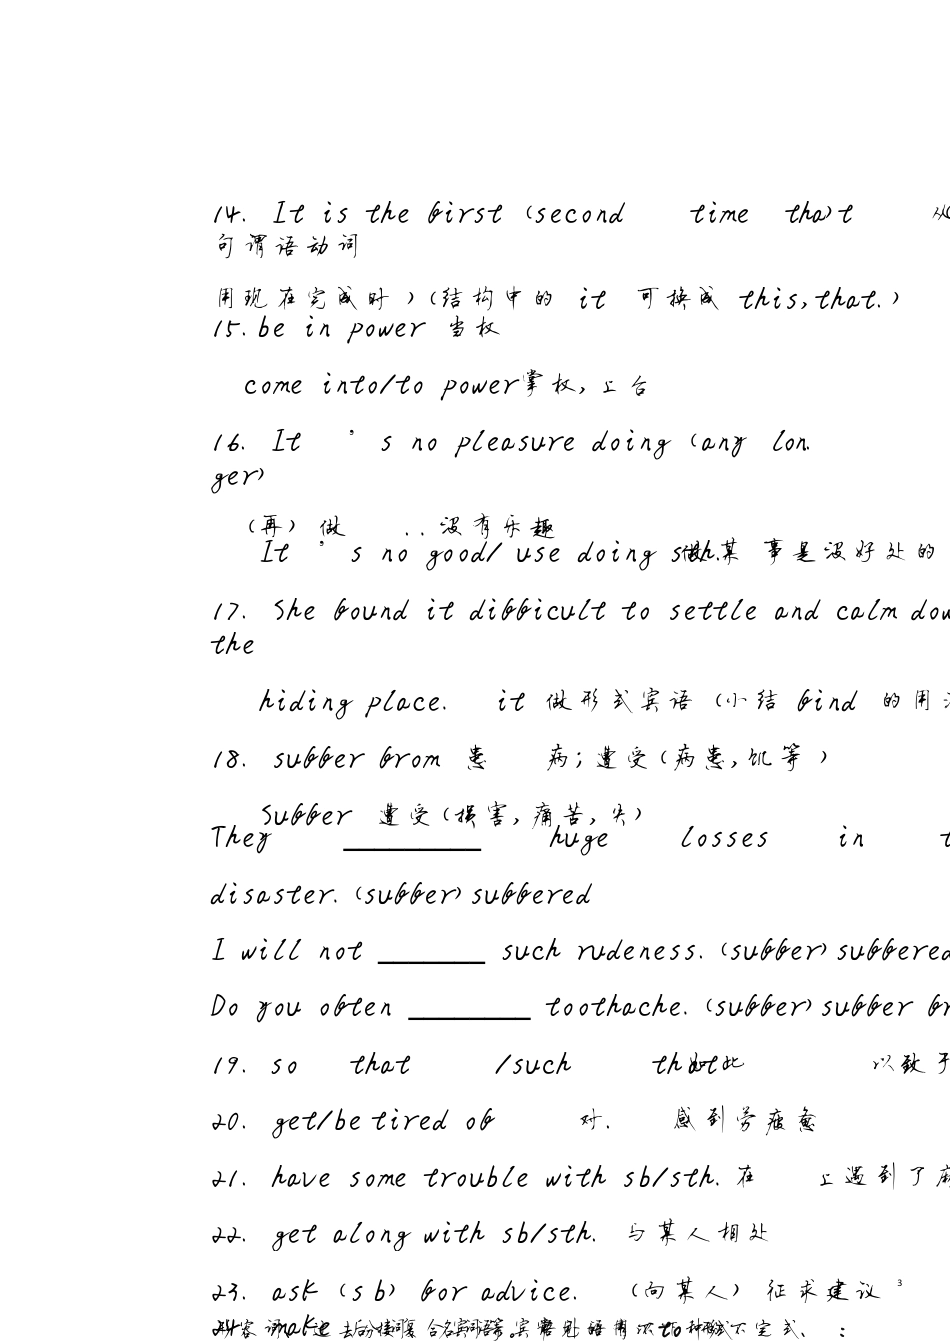 14. It is the first (second time that) 从
句谓语动词
用现在完成时)(结构中的 it 可换成 this,that.)
15. be in power 当权
come into/to power掌权,上台
16. It ’s no pleasure doing (any lon.
ger)
(再) 做 ..没有乐趣
It ’s no good/ use doing sth.做某 事是没好处的
17. She found it difficult to settle and calm dow
the
hiding place. it 做形式宾语 (小结 find 的用
18. suffer from 患 病;遭受(病患,饥等)
Suffer 遭受(损害,痛苦,失)
They ________ huge losses in t
disaster. (suffer) suffered
I will not ______ such rudeness. (suffer) suffered
Do you often _______ toothache. (suffer) suffer fr
19. so that /such that 如此 以致于
20. get/be tired of 对. 感到劳疲惫
21. have some trouble with sb/sth. 在 上遇到了麻
22. get along with sb/sth. 与某人相处
23. ask (s b) for advice. (向某人) 征求建议
3
make